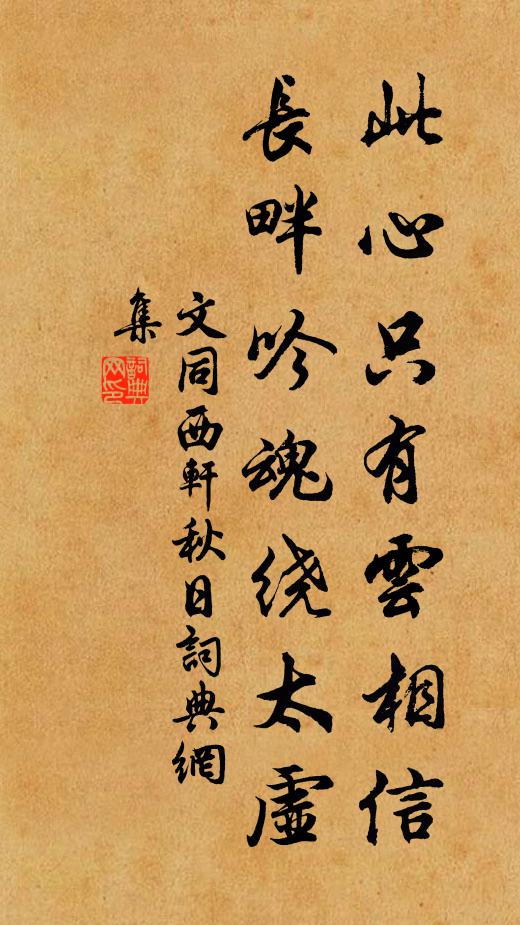 此心只有雲相信
長畔吟魂绕太虛
文同西軒秋日詞典網
集
詞典
网印